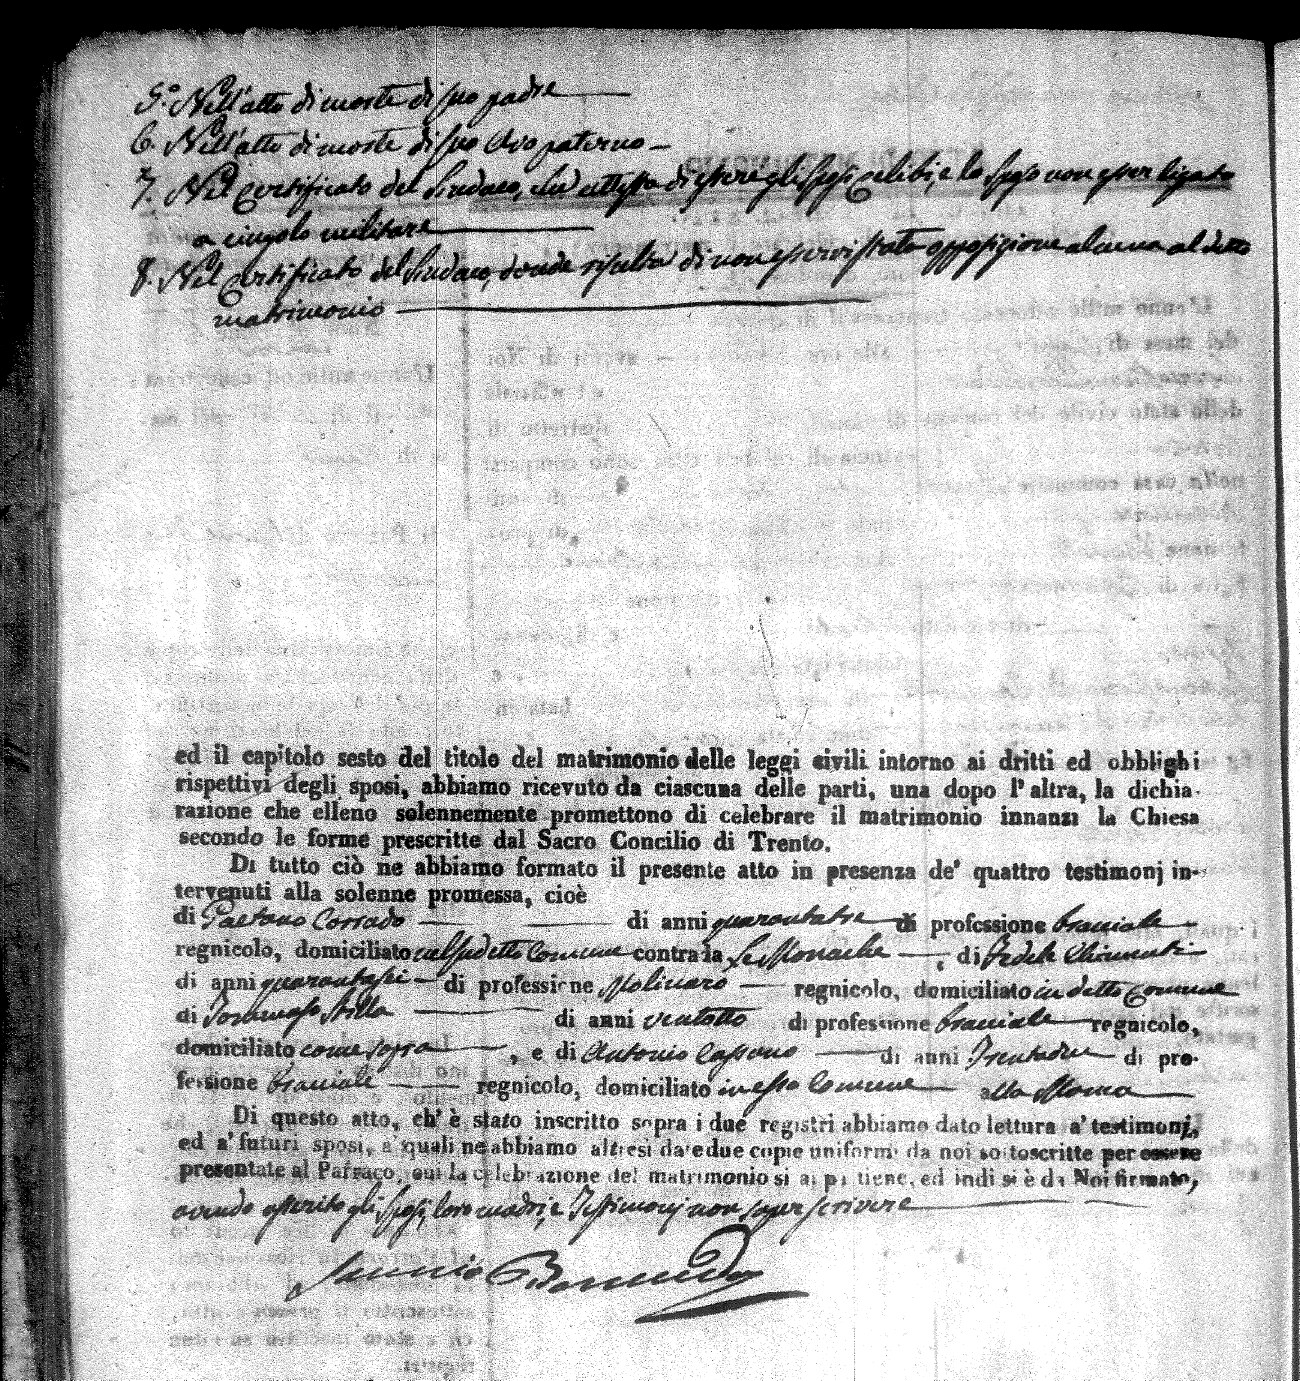 5.º Nell'atto di morte di suo padre
6. Nell'atto di morte di suo Avo paterno
7. Nel Certificato del Sindaco, che attesta di essere gli Sposi celibi, e lo sposo non esser ligato
a cingolo militare
8. Nel Certificato del Sindaco, donde risulta di non esservi stata opposizione alcuna al detto
matrimonio
ed il capitolo sesto del titolo del matrimonio delle leggi civili intorno ai dritti ed obblighi
rispettivi degli sposi, abbiamo ricevuto da ciascuna delle parti, una dopo l'altra, la dichia-
razione che elleno solennemente promettono di celebrare il matrimonio innanzi la Chiesa
secondo le forme prescritte dal Sacro Concilio di Trento.
Di tutto ciò ne abbiamo formato il presente atto in presenza de' quattro testimonj in-
tervenuti alla solenne promessa, cioè
di Gaetano Corrado di anni quarantatre di professione bracciale
regnicolo, domiciliato nel sudetto Comune contrada Le Monache, di Fedele Chirienti
di anni quarantasei di professione Molinaro regnicolo, domiciliato in detto Comune
di Tommaso Stilla di anni ventotto di professione bracciale regnicolo,
domiciliato come sopra, e di Antonio Cassono di anni Trentadue di pro-
fessione bracciale regnicolo, domiciliato in esso Comune alla
Di questo atto, ch' è stato inscritto sopra i due registri abbiamo dato lettura a' testimonj,
ed a' futuri sposi, a' quali ne abbiamo altresì date due copie uniformi da noi sottoscritte per essere
presentate al Parraco, cui la celebrazione del matrimonio si appartiene, ed indi si è da Noi firmato,
avendo asserito gli Sposi, loro madri, e Testimonj non saper scrivere